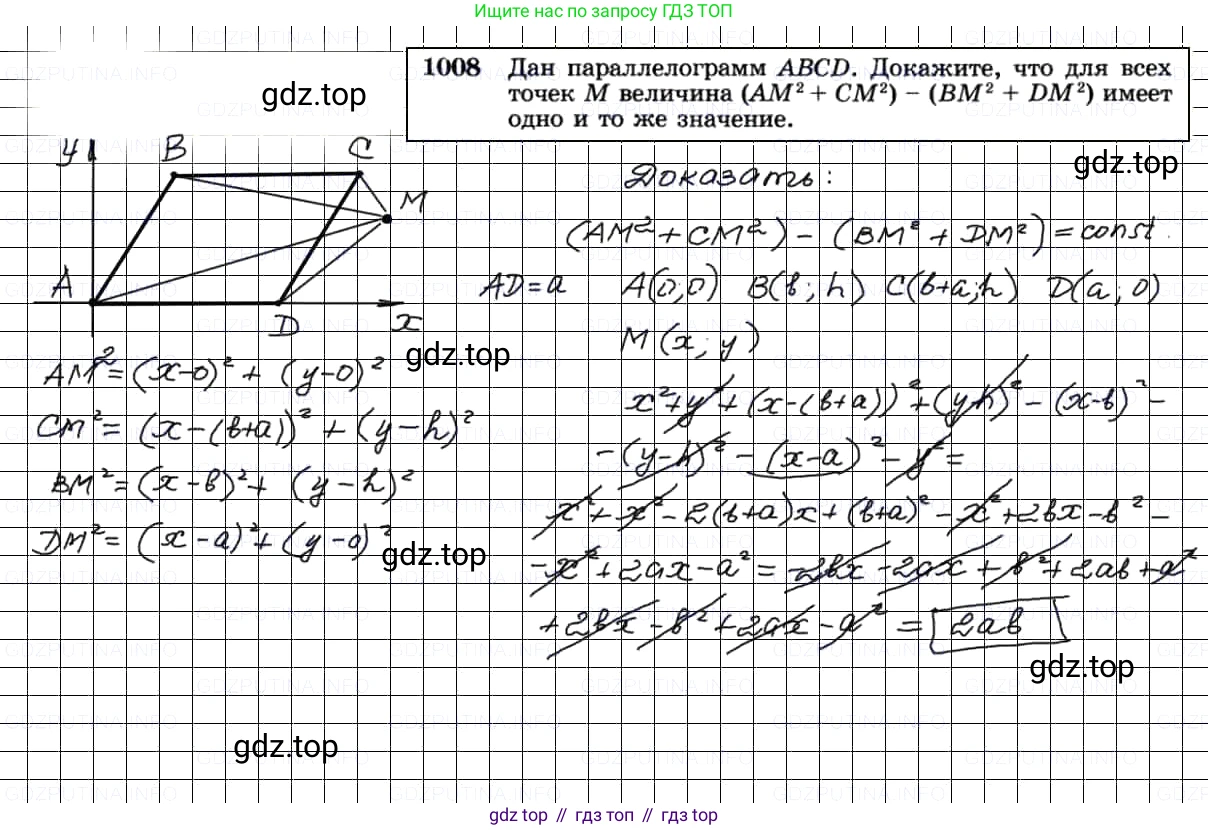 Ищите нас по запросу ГДЗ ТОП
1008 Дан параллелограмм ABCD. Докажите, что для всех
точек M величина (AM² + CM²) − (BM² + DM²) имеет
одно и то же значение.
gdz.top
gdz.top
y B C M
A D x
Доказать:
(AM² + CM²) − (BM² + DM²) = const.
AD = a A(0;0) B(b; h) C(b+a; h) D(a; 0)
M(x; y)
gdz.top
AM² = (x−0)² + (y−0)²
CM² = (x−(b+a))² + (y−h)²
BM² = (x−b)² + (y−h)²
DM² = (x−a)² + (y−0)²
gdz.top
x² + y² + (x−(b+a))² + (y−h)² − (x−b)² −
− (y−h)² − (x−a)² − y² =
x² + x² − 2(b+a)x + (b+a)² − x² + 2bx − b² −
− x² + 2ax − a² = −2bx − 2ax + b² + 2ab + a²
+ 2bx − b² + 2ax − a² = 2ab
gdz.top
gdz.top
gdz top // гдз топ // гдз top